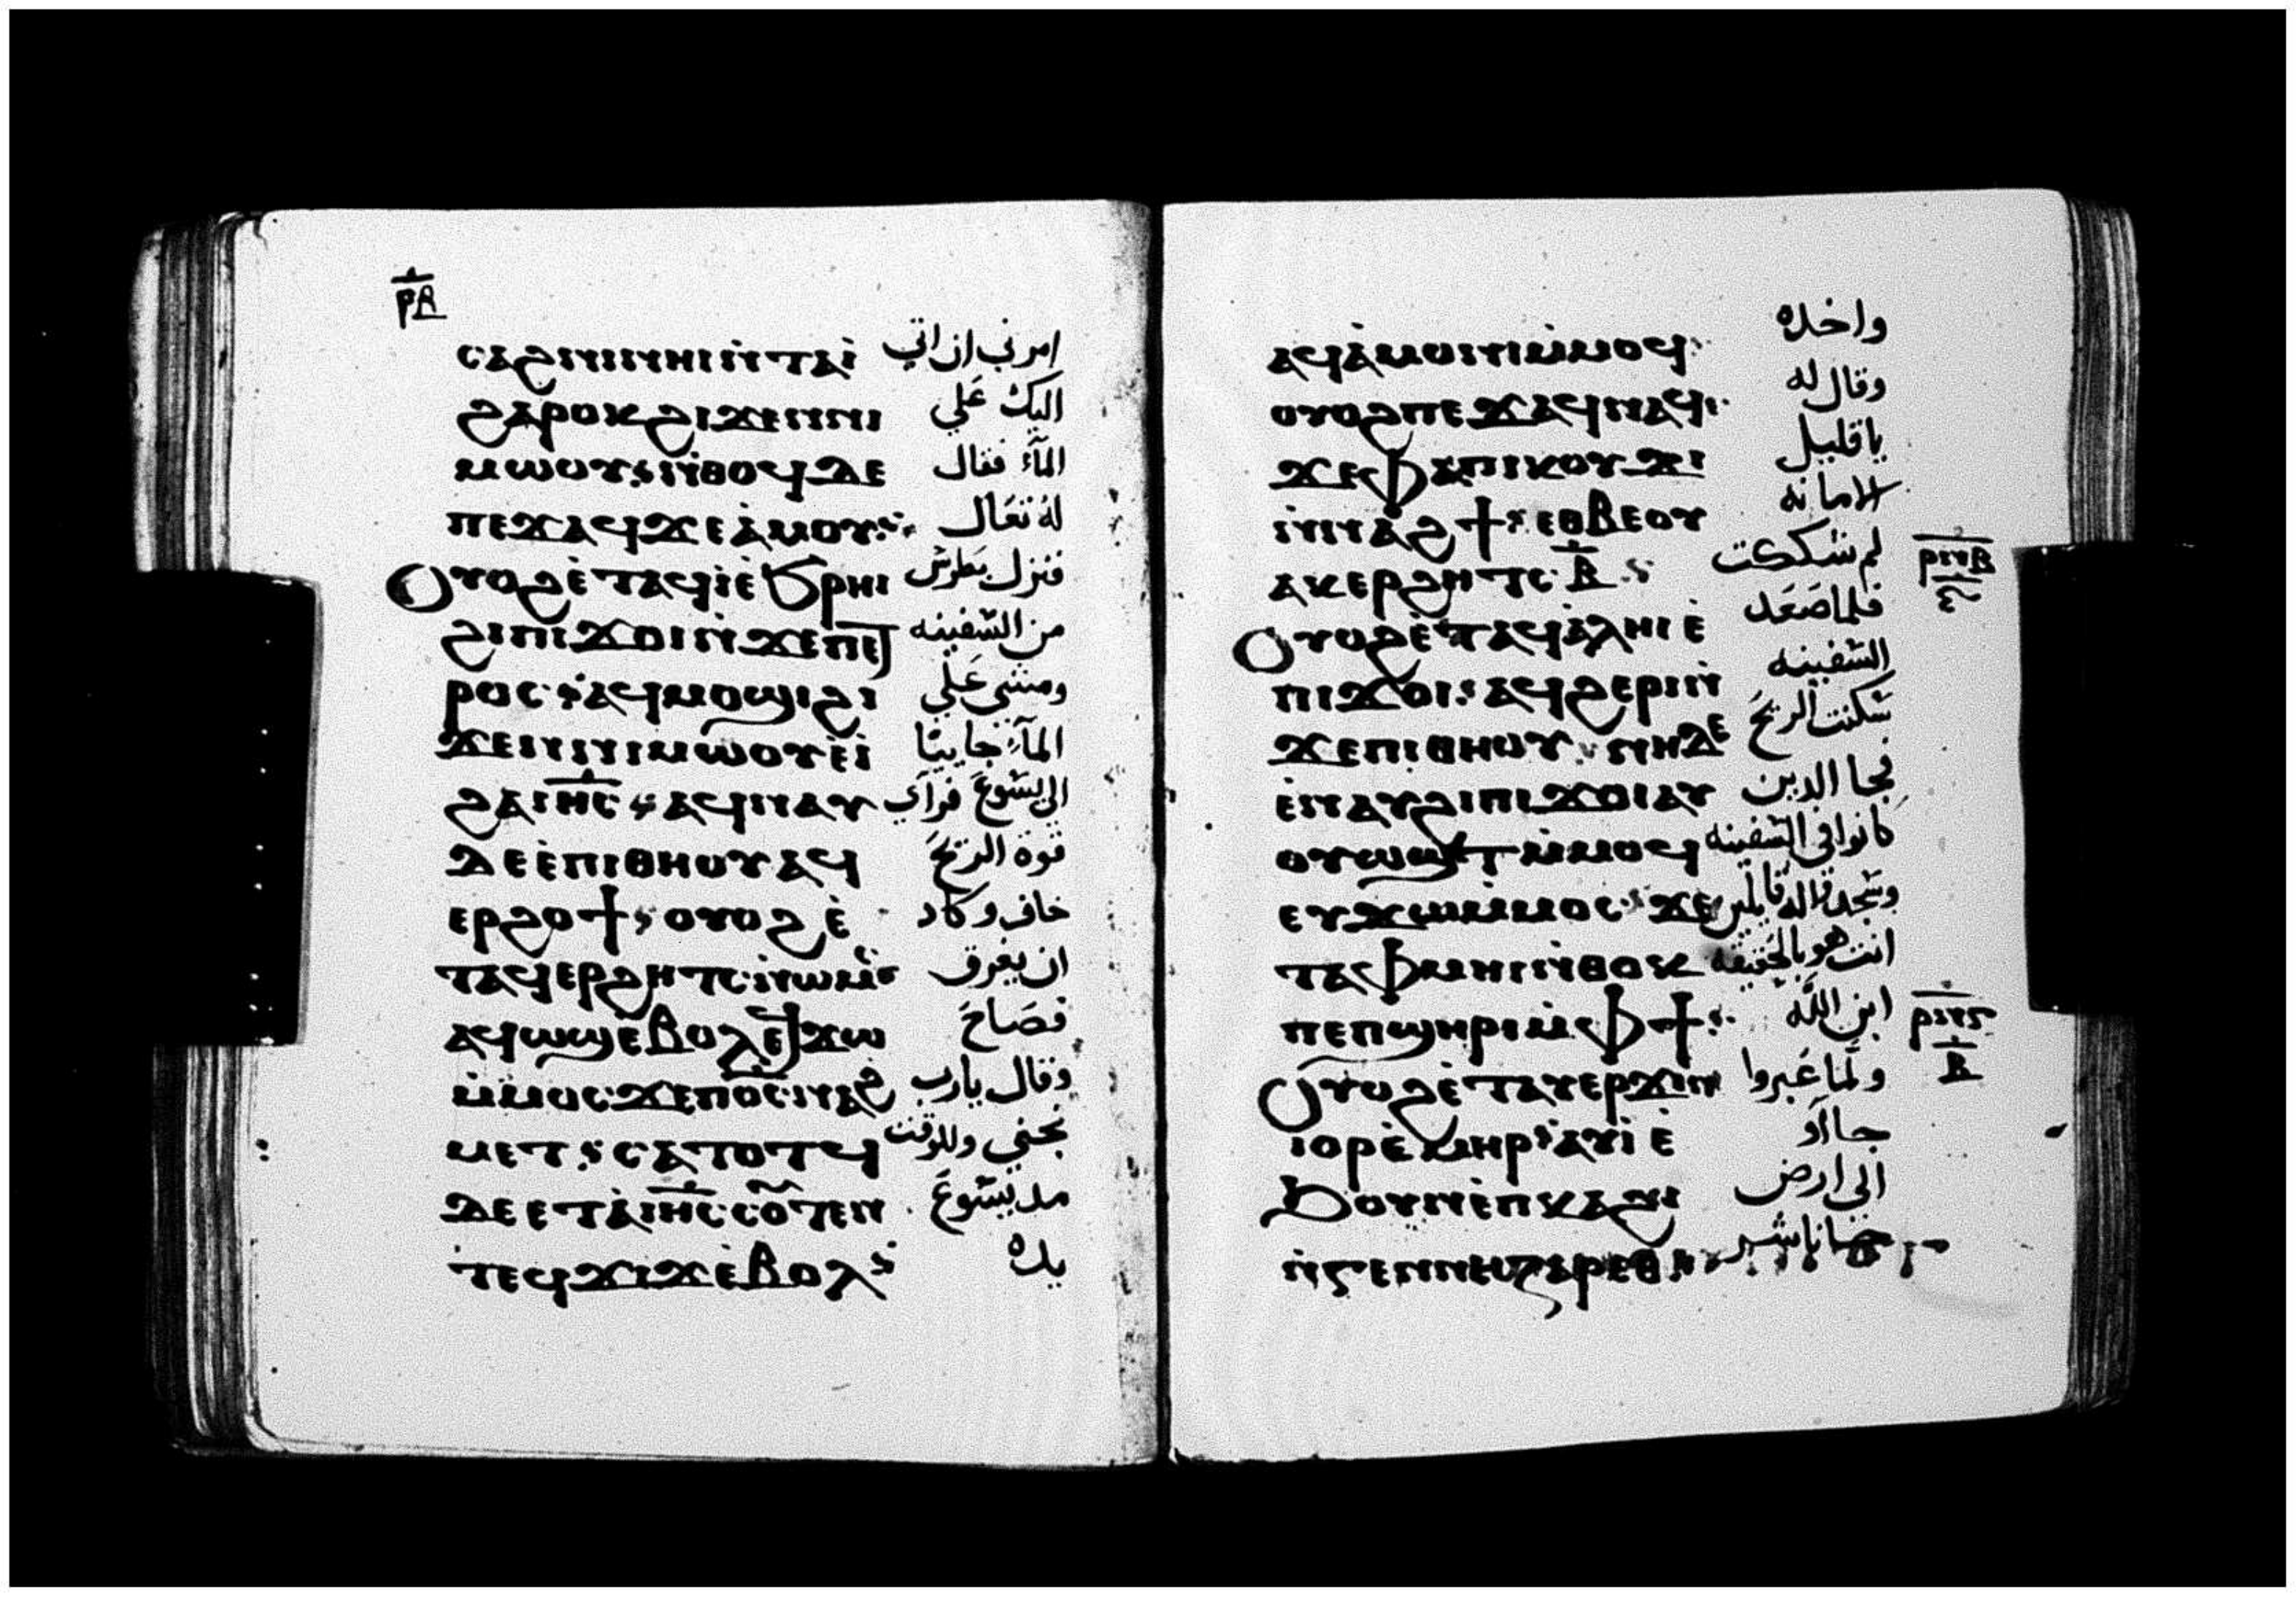 ⲣⲁ
ⲥⲁϩⲛⲓⲛⲏⲓⲛⲧⲁⲓ̀ امرني ان اتي
ϩⲁⲣⲟⲕϩⲓϫⲉⲛⲛⲓ اليك عَلي
ⲙⲱⲟⲩ ⲛ̀ⲑⲟϥⲇⲉ المآء فقال
ⲡⲉϫⲁϥϫⲉⲁ̀ⲙⲟⲩ لهُ تعَال
ⲟⲩⲟϩⲉ̀ⲧⲁϥⲓ̀ⲉ̀ϧⲣⲏⲓ فنزل بطرس
ϩⲓⲡⲓϫⲟⲓⲛ̀ϫⲉⲡⲉⲧ من السفينه
ⲣⲟⲥ ⲁϥⲙⲟϣⲓϩⲓ ومشي عَلي
ϫⲉⲛⲛⲓⲙⲱⲟⲩⲉ̀ⲓ̀ المآء جاييًا
ϩⲁⲓⲏ̅ⲥ̅ ⲁϥⲛⲁⲩ الى يسوعَ فرآي
ⲇⲉⲉ̀ⲡⲓⲑⲏⲟⲩⲁϥ قوة الريحَ
ⲉⲣϩⲟϯ ⲟⲩⲟϩⲉ̀ خاف وكاد
ⲧⲁϥⲉⲣϩⲏⲧⲥⲛ̀ⲱⲙⲥ ان يغرق
ⲁϥⲱϣⲉⲃⲟⲗⲉϥϫⲱ فصَاحَ
ⲙ̀ⲙⲟⲥϫⲉⲡⲟ̅ⲥ̅ⲛⲁϩ وقال يارب
ⲙⲉⲧ ⲥⲁⲧⲟⲧϥ نجني وللوقت
ⲇⲉⲉⲧⲁ̀ⲓⲏ̅ⲥ̅ⲥⲟⲩⲧⲉⲛ مد يسوعَ
ⲧⲉϥϫⲓϫⲉ̀ⲃⲟⲗ يده
ⲁϥⲁ̀ⲙⲟⲛⲓⲙ̀ⲙⲟϥ واخده
ⲟⲩⲟϩⲡⲉϫⲁϥⲛⲁϥ وقال له
ϫⲉⲫⲁⲡⲓⲕⲟⲩϫⲓ ياقليل
ⲛ̀ⲛⲁϩϯ ⲉⲑⲃⲉⲟⲩ الامانه
ⲁⲕⲉⲣϩⲏⲧⲥ̅ⲃ̅ لم شككت ⲣⲛⲃ
ⲟⲩⲟϩⲉ̀ⲧⲁϥⲁ̀ⲗⲏⲓⲉ̀ فلما صَعَد
ⲡⲓϫⲟⲓ ⲁϥϩⲉⲣⲓⲛ̀ السفينه
ϫⲉⲡⲓⲑⲏⲟⲩ ⲛⲏⲇⲉ سكنت الريحَ
ⲉ̀ⲛⲁⲩϩⲓⲡⲓϫⲟⲓⲁⲩ فجا الدين
ⲟⲩⲱϣⲧⲙ̀ⲙⲟϥ كانوا في السفينه
ⲉⲩϫⲱⲙ̀ⲙⲟⲥ ϫⲉ وسجدوا له قايلين
ⲧⲁⲫⲙⲏⲓⲛ̀ⲑⲟⲕ انت هو بالحقيقه
ⲡⲉⲡϣⲏⲣⲓⲙ̀ⲫϯ ابن اللّٰه ⲣⲛⲅ
ⲃ
ⲟⲩⲟϩⲉ̀ⲧⲁⲩⲉⲣϫⲓⲛ ولَّما عَبروا
ⲓⲟⲣⲉ̀ⲙⲏⲣ ⲁⲩⲓ̀ⲉ̀ جااَو
ϧⲟⲩⲛⲉ̀ⲡⲕⲁϩⲓ الى ارض
ⲛ̀ⲅⲉⲛⲛⲏⲍⲁⲣⲉⲑ